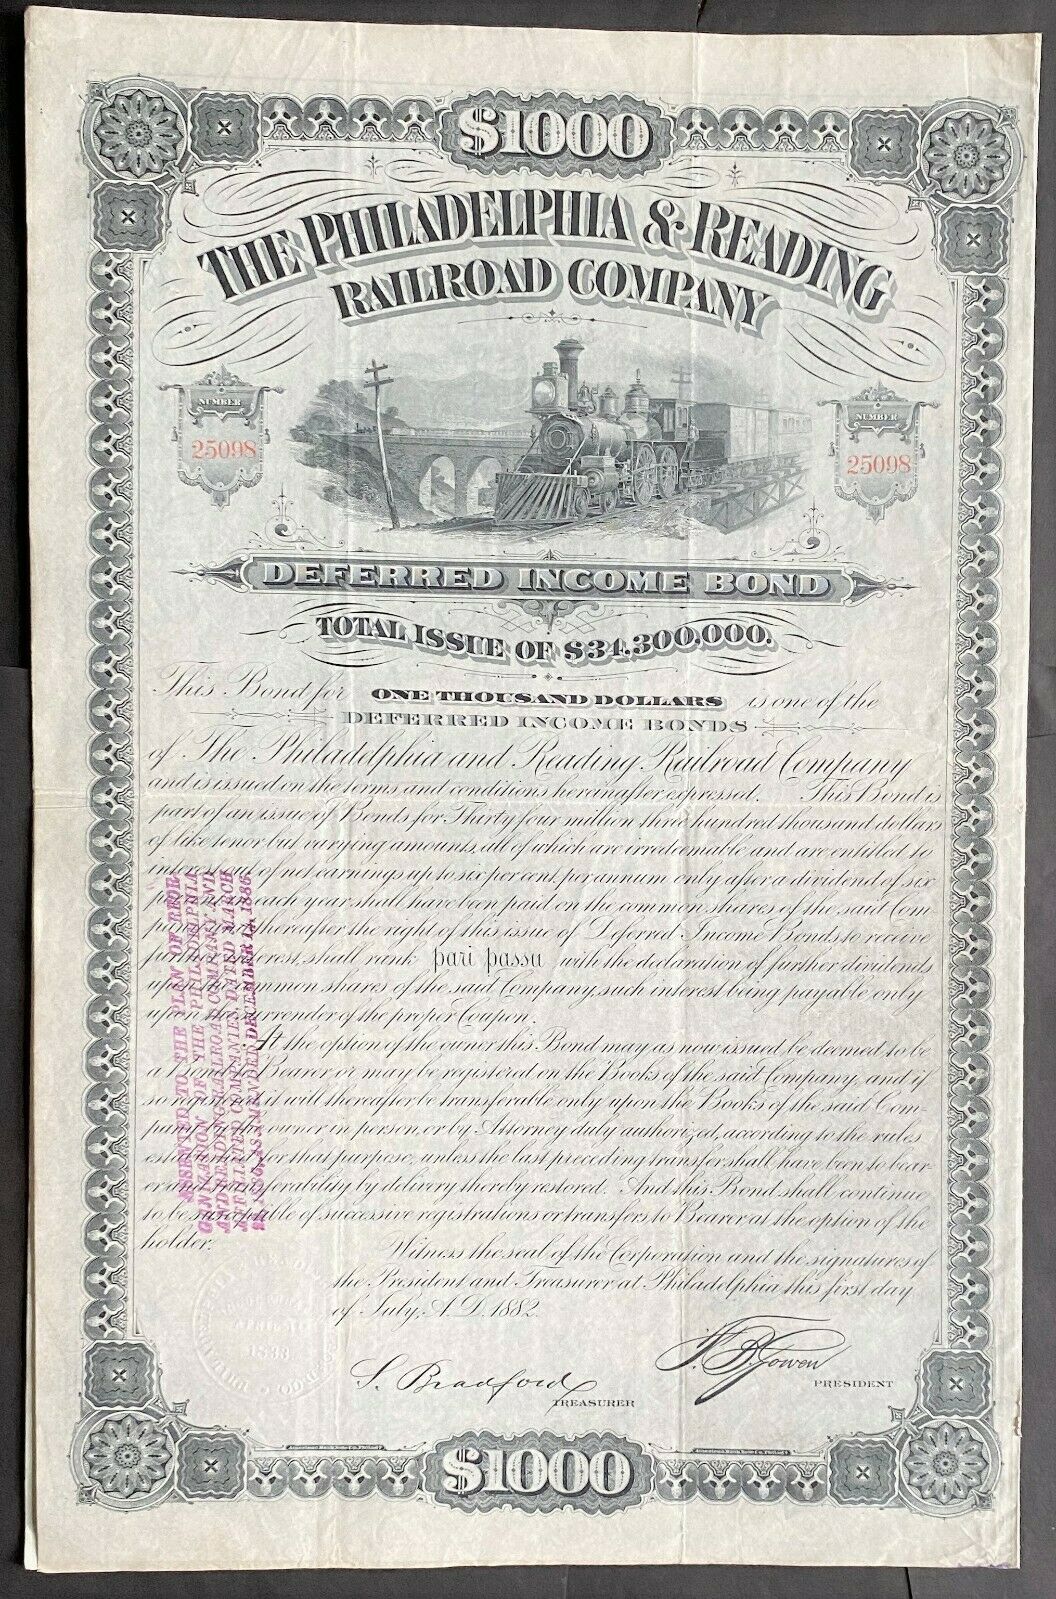 $1000
THE PHILADELPHIA & READING
RAILROAD COMPANY
NUMBER
25098
NUMBER
25098
DEFERRED INCOME BOND
TOTAL ISSUE OF $34,300,000.
This Bond for ONE THOUSAND DOLLARS is one of the
DEFERRED INCOME BONDS
of The Philadelphia and Reading Railroad Company
and is issued on the terms and conditions hereinafter expressed. This Bond is
part of an issue of Bonds for Thirty four million three hundred thousand dollars
of like tenor but varying amounts, all of which are irredeemable and are entitled to
interest out of net earnings up to six per cent. per annum only after a dividend of six
per cent. in each year shall have been paid on the common shares of the said Com-
pany, and thereafter the right of this issue of Deferred Income Bonds to receive
further interest, shall rank pari passu with the declaration of further dividends
upon the common shares of the said Company, such interest being payable only
upon the surrender of the proper Coupon.
At the option of the owner this Bond may as now issued be deemed to be
a Bond to Bearer or may be registered on the Books of the said Company, and if
so registered it will thereafter be transferable only upon the Books of the said Com-
pany by the owner in person, or by Attorney duly authorized, according to the rules
established for that purpose, unless the last preceding transfer shall have been to bear-
er and transferability by delivery thereby restored. And this Bond shall continue
to be susceptible of successive registrations or transfers to Bearer at the option of the
holder.
Witness the seal of the Corporation and the signatures of
the President and Treasurer at Philadelphia this first day
of July, A.D. 1882
ASSENTED TO THE PLAN OF REOR-
GANIZATION OF THE PHILADELPHIA
AND READING RAILROAD COMPANY AND
AFFILIATED COMPANIES, DATED MARCH
AS AMENDED DECEMBER 14, 1886.
S. Bradford
TREASURER
F. B. Gowen
PRESIDENT
American Bank Note Co. Philada
American Bank Note Co. Philada
$1000